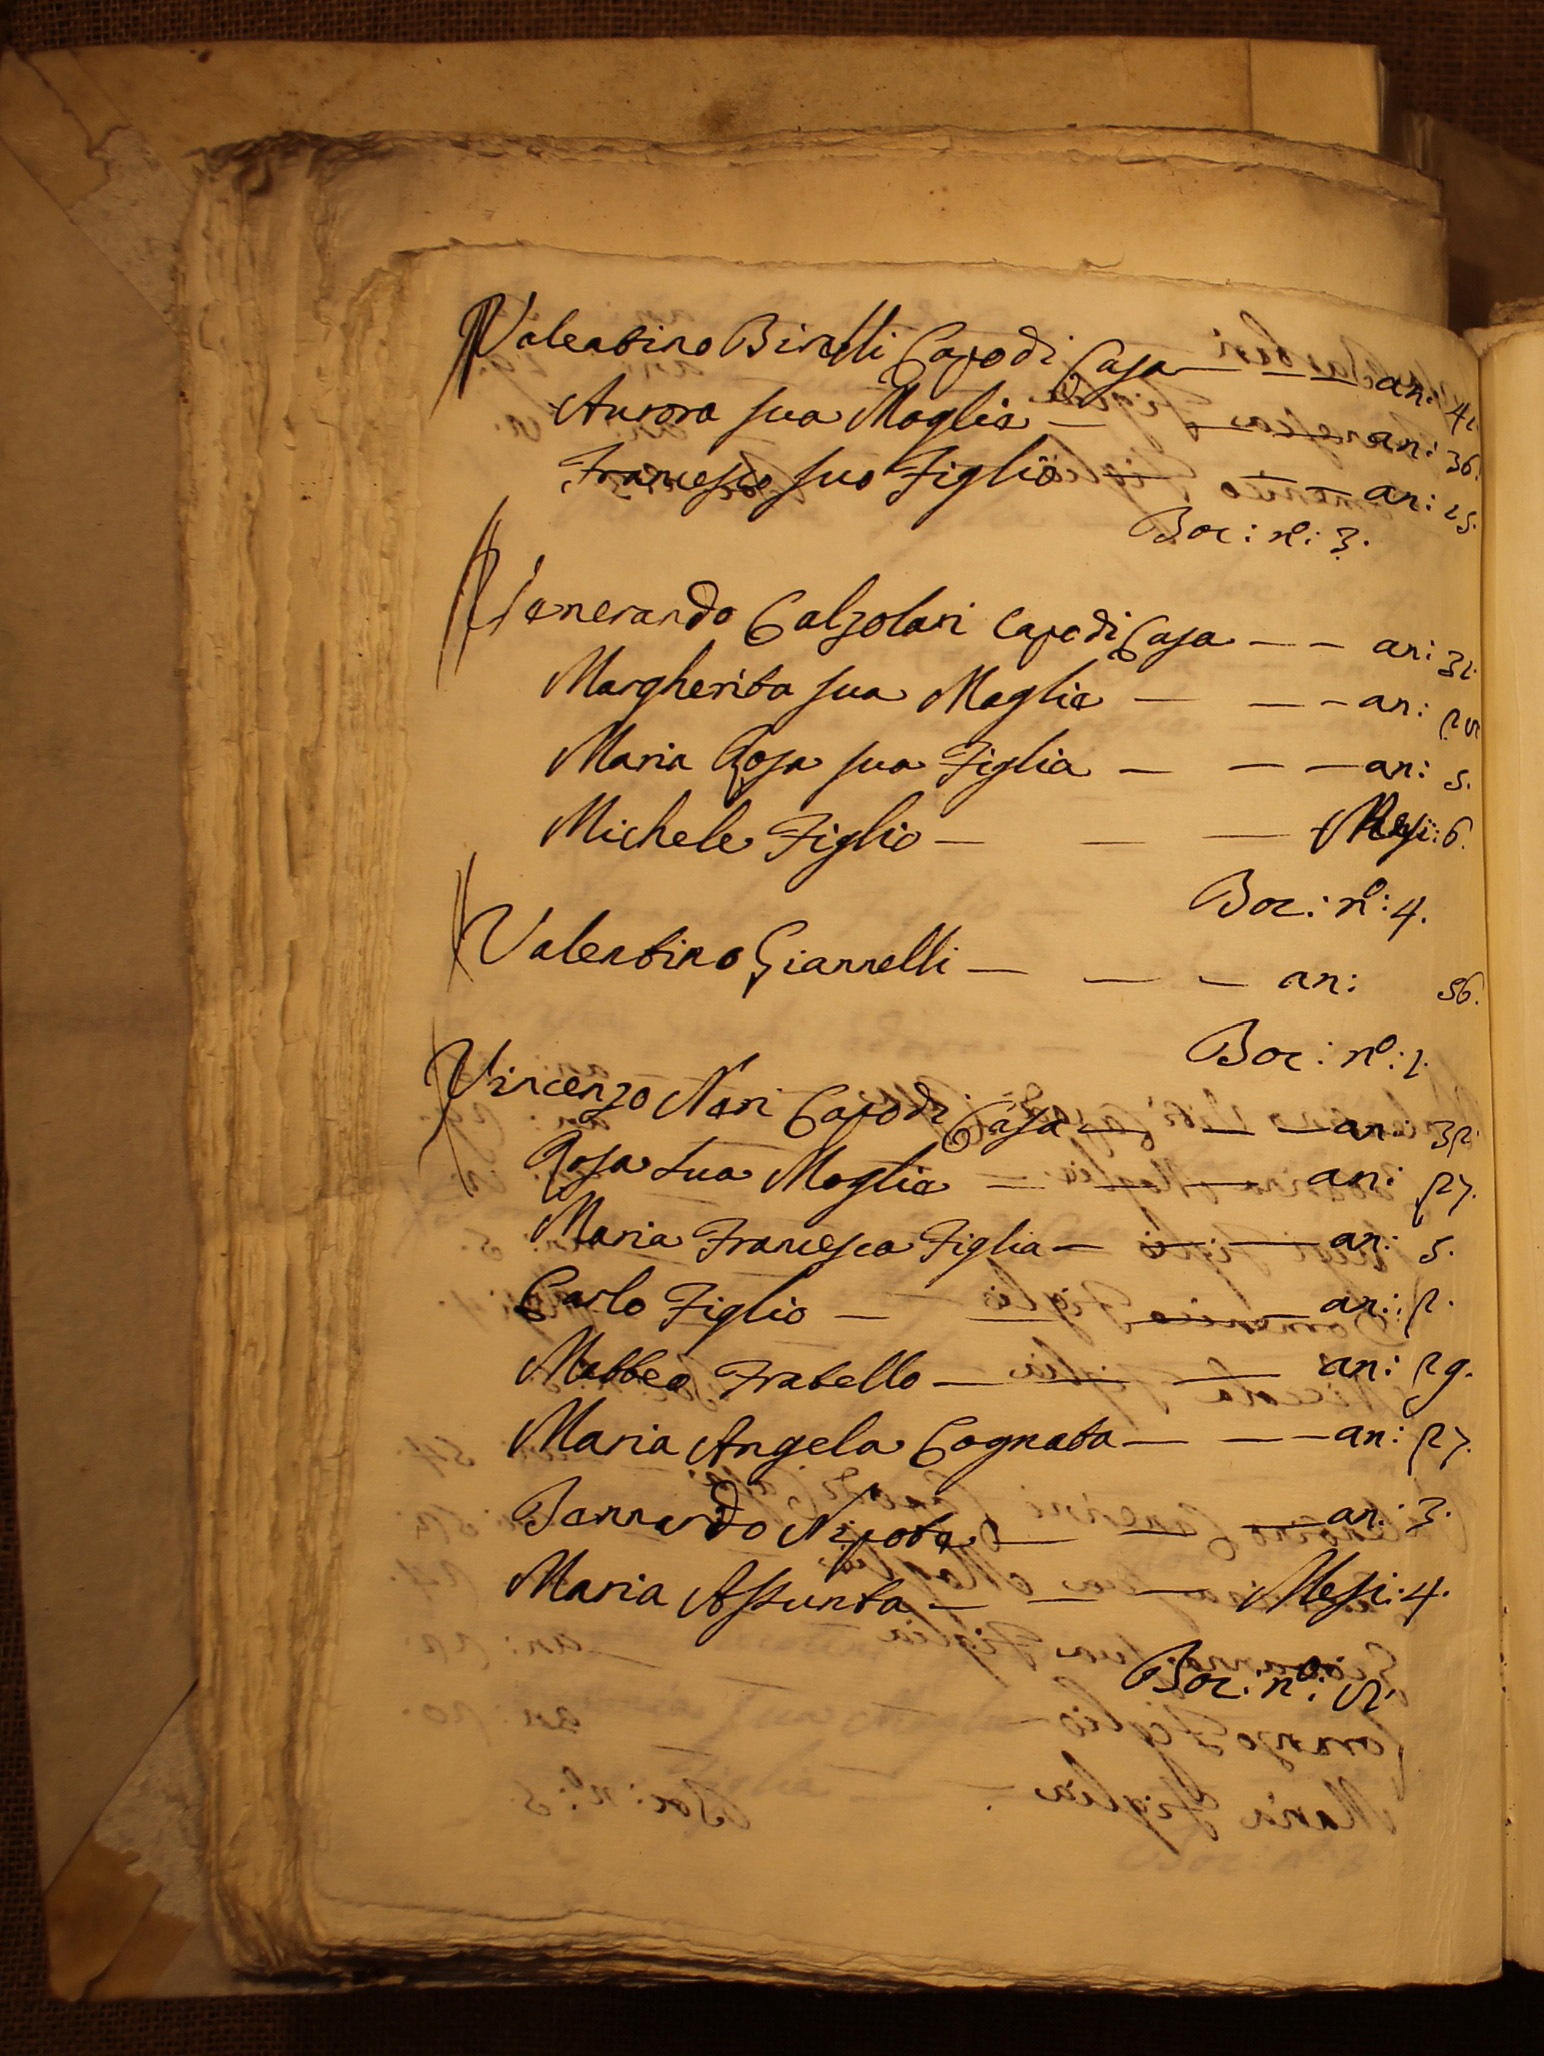 Valentino Birelli Capo di Casa — — — an: 41.
Aurora sua Moglie — — — an: 36.
Francesco suo Figlio — — — an: 15.
Boc: nº: 3.
Venerando Calzolari Capo di Casa — — an: 31.
Margherita sua Moglie — — — an:
Maria Rosa sua Figlia — — — an: 5.
Michele Figlio — — — Mesi: 6.
Boc: nº: 4.
Valentino Giannelli — — — an: 56.
Boc: nº: 1.
Vincenzo Neri Capo di Casa — — — an: 32.
Rosa sua Moglie — — an: 27.
Maria Francesca Figlia — — — an: 5.
Carlo Figlio — — — an: 2.
Matteo Fratello — — — an: 29.
Maria Angela Cognata — — — an: 27.
Bernardo Nipote — — — an: 3.
Maria Assunta — — — Mesi: 4.
Boc: nº: